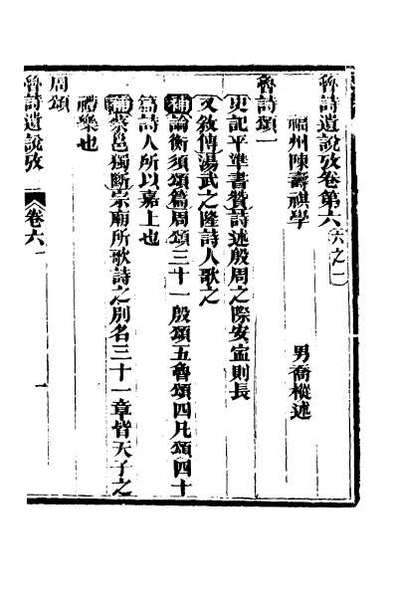 魯詩遺說攷卷第六 六之一
福州陳壽祺學 男喬樅述
魯詩頌一
史記平準書贊詩述殷周之際安寍則長
又敘傳湯武之隆詩人歌之
補論衡須頌篇周頌三十一殷頌五魯頌四凡頌四十
篇詩人所以嘉上也
補蔡邕獨斷宗廟所歌詩之別名三十一章皆天子之
禮樂也
周頌
魯詩遺說攷 卷六 一 一